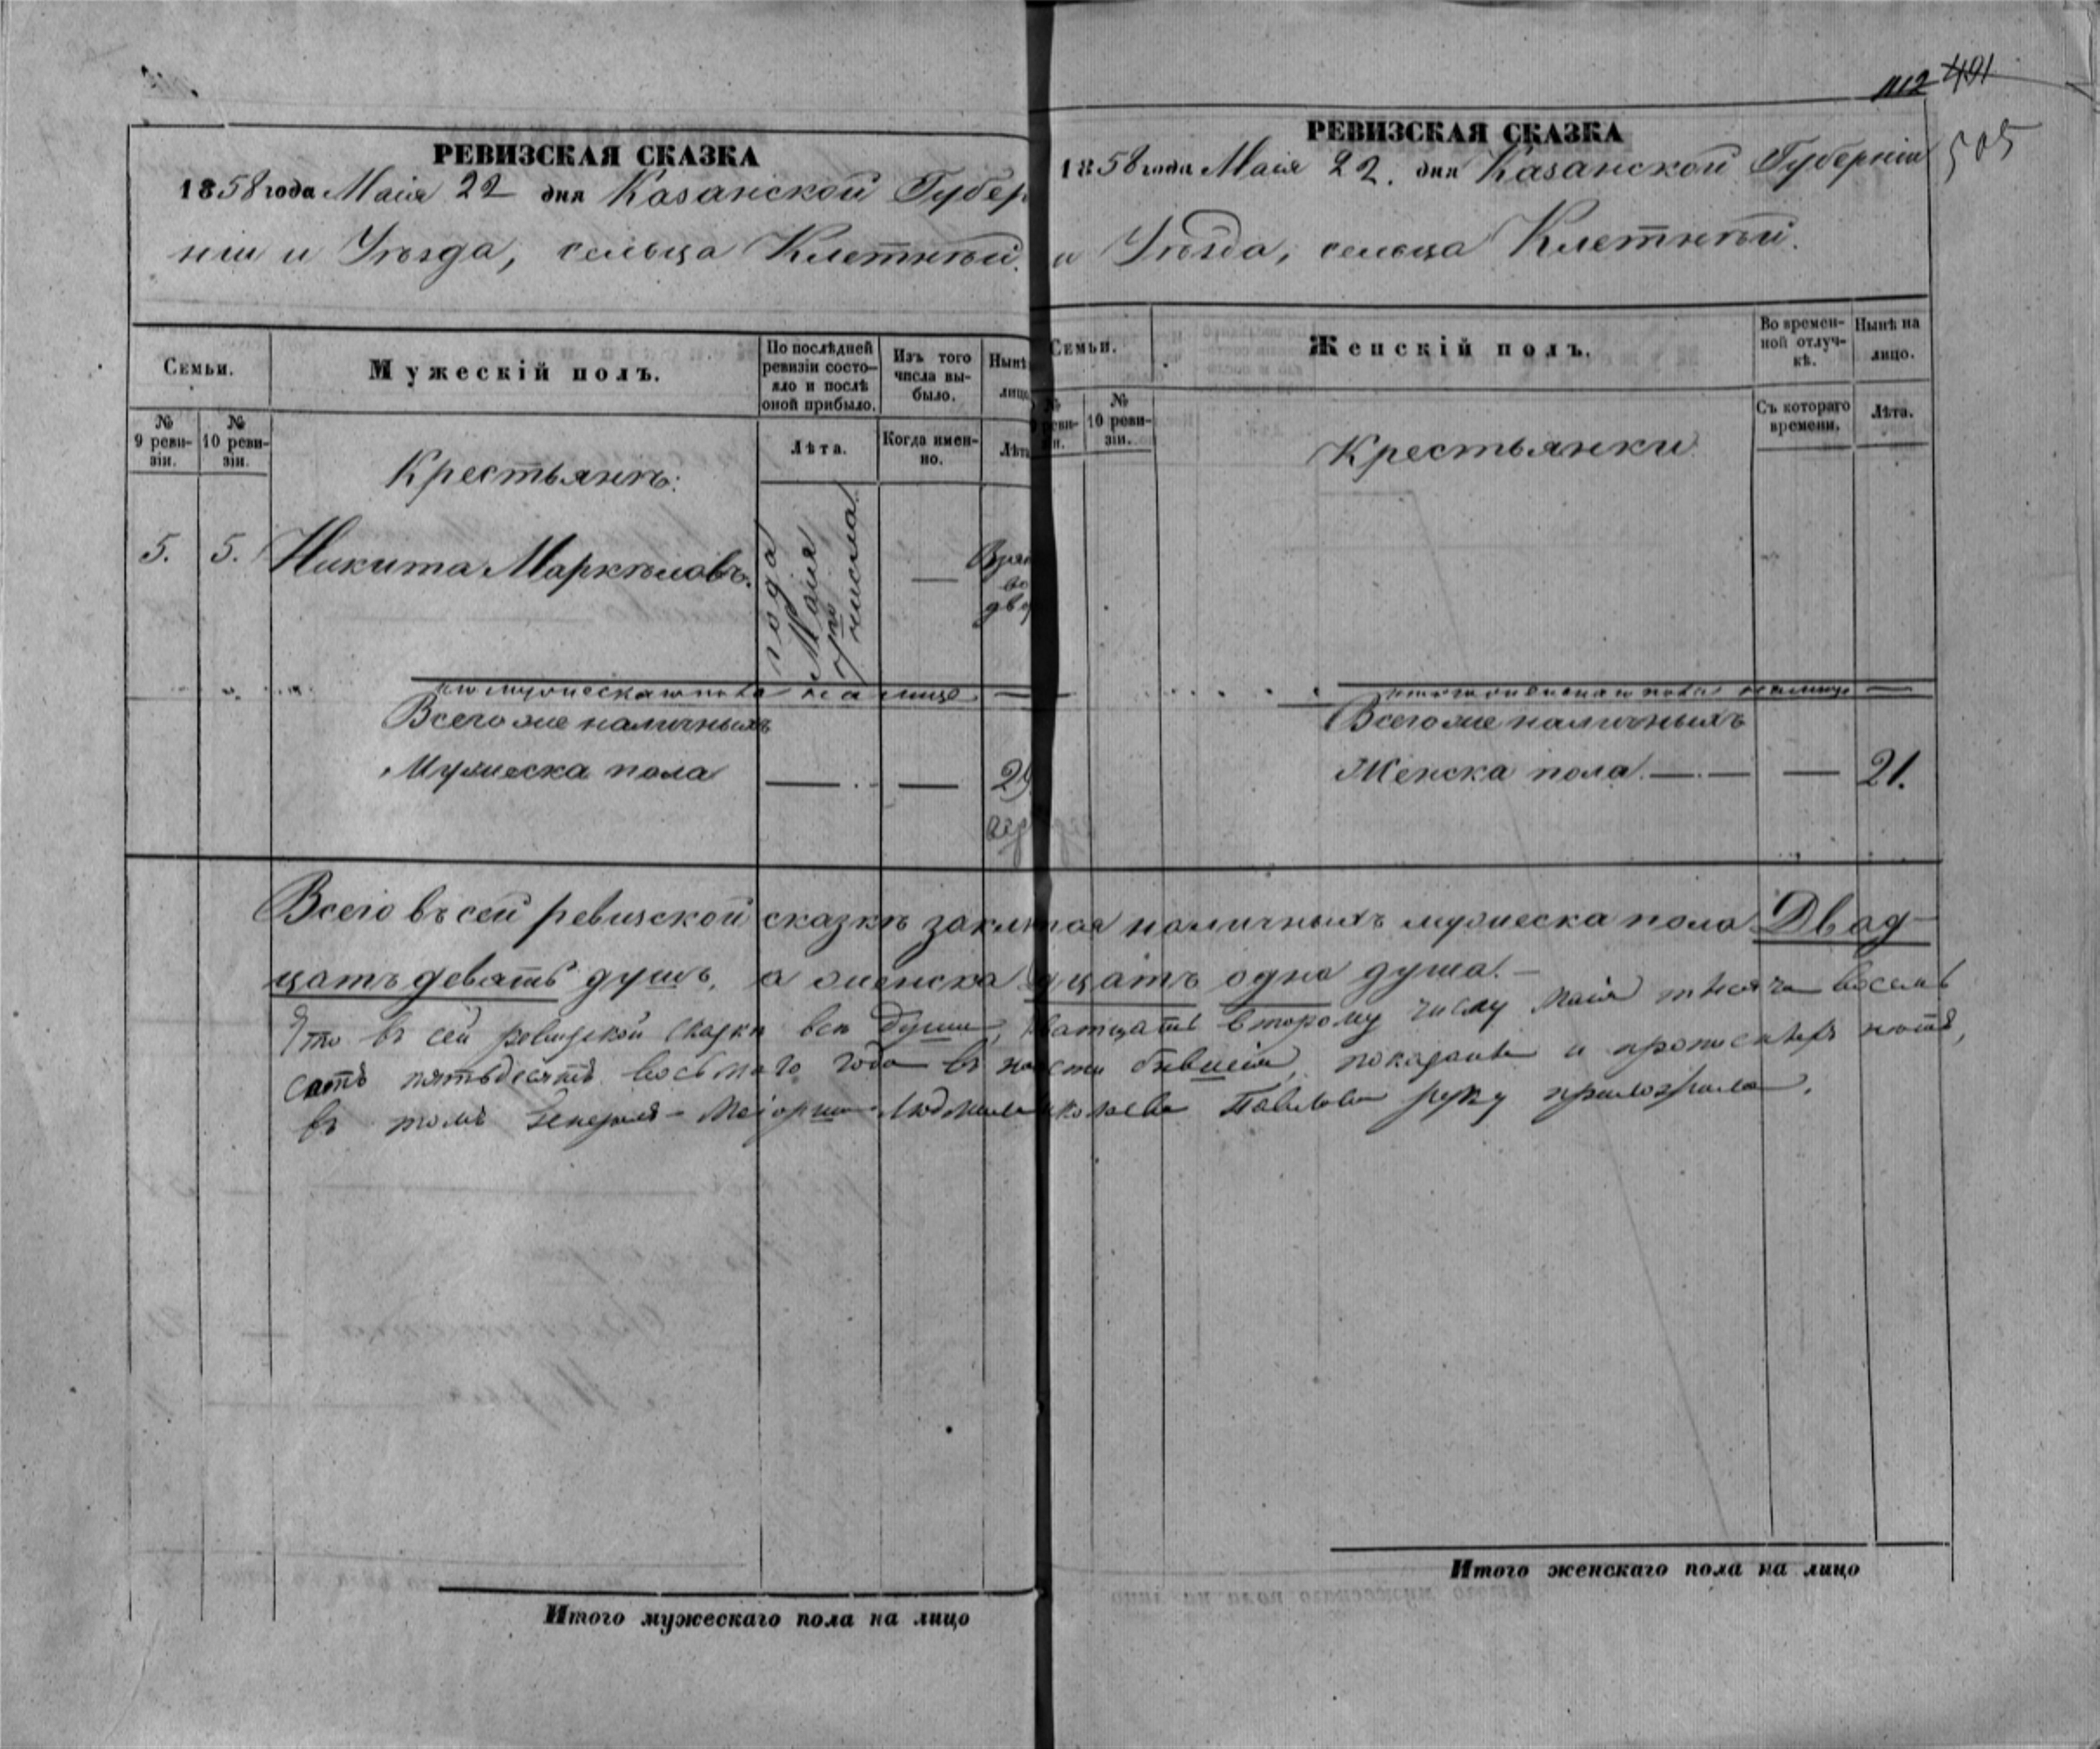 РЕВИЗСКАЯ СКАЗКА
1858 года Маія 22 дня Казанской Губер
ніи и Уѣзда, сельца Клетнѣй.
Семьи.
Мужескій полъ.
По послѣдней ревизіи состо-
яло и послѣ
оной прибыло.
Изъ того
числа вы-
было.
Нынѣ
лицо
№
9 реви-
зіи.
№
10 реви-
зіи.
Лѣта.
Когда имен-
но.
Лѣта
Крестьянъ:
5. 5. Никита Маркѣловъ.
года
Маія
числа
во
Всего же наличныхъ
Мужеска пола 29
Итого мужескаго пола на лицо
112 401
505
РЕВИЗСКАЯ СКАЗКА
1858 года Маія 22. дня Казанской Губерніи
и Уѣзда, сельца Клетнѣй.
Семьи.
Женскій полъ.
Во времен-
ной отлуч-
кѣ.
Нынѣ на
лицо.
№
реви-
зіи.
№
10 реви-
зіи.
Съ котораго
времени.
Лѣта.
Крестьянки
Всего же наличныхъ
Женска пола. 21.
Всего въ сей ревизской сказкѣ наличныхъ мужеска пола Двад-
цать девять душъ, а женска цать одна душа.
Что въ сей ревизской сказки всѣ души, второму числу Маія тысяча восемь
сотъ пятьдесятъ восьмаго года въ бывшія, показаны и нѣтъ,
въ томъ Генералъ-Маіорша Людмила Павлова руку приложила.
Итого женскаго пола на лицо